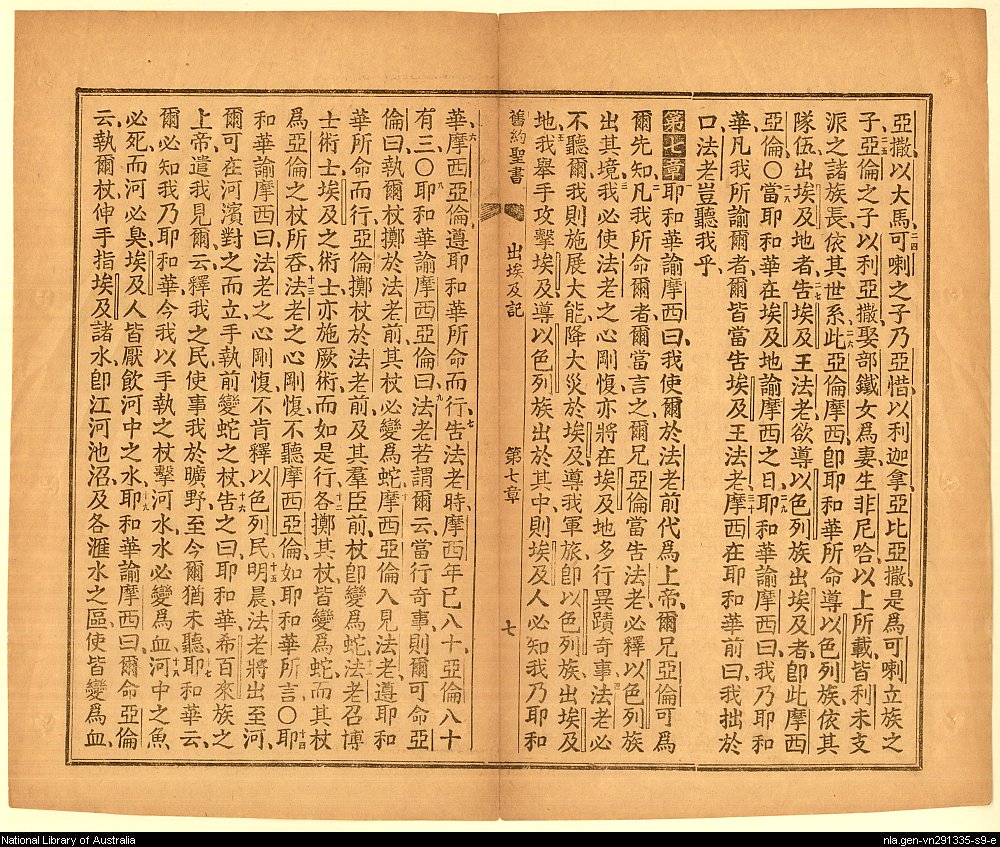 亞撒、以大馬、可喇之子、乃亞惜、以利迦拿、亞比亞撒、是爲可喇立族之
子、亞倫之子以利亞撒、娶部鐵女爲妻、生非尼哈、以上所載、皆利未支
派之諸族長、依其世系、此亞倫摩西、卽耶和華所命導以色列族、依其
隊伍出埃及地者、告埃及王法老、欲導以色列族出埃及者、卽此摩西
亞倫〇當耶和華在埃及地諭摩西之日、耶和華諭摩西曰、我乃耶和
華、凡我所諭爾者、爾皆當告埃及王法老、摩西在耶和華前曰、我拙於
口、法老豈聽我乎、
第七章 耶和華諭摩西曰、我使爾於法老前代爲上帝、爾兄亞倫可爲
爾先知、凡我所命爾者、爾當言之、爾兄亞倫當告法老、必釋以色列族
出其境、我必使法老之心剛愎、亦將在埃及地多行異蹟奇事、法老必
不聽爾、我則施展大能、降大災於埃及、導我軍旅、卽以色列族、出埃及
地、我舉手攻擊埃及、導以色列族出於其中、則埃及人必知我乃耶和
舊約聖書 出埃及記 第七章 七
華、摩西亞倫遵耶和華所命而行、告法老時、摩西年已八十、亞倫八十
有三〇耶和華諭摩西亞倫曰、法老若謂爾云、當行奇事、則爾可命亞
倫曰、執爾杖擲於法老前、其杖必變爲蛇、摩西亞倫入見法老、遵耶和
華所命而行、亞倫擲杖於法老前、及其羣臣前、杖卽變爲蛇、法老召博
士術士、埃及之術士亦施厥術、而如是行、各擲其杖、皆變爲蛇、而其杖
爲亞倫之杖所吞、法老之心剛愎、不聽摩西亞倫、如耶和華所言〇耶
和華諭摩西曰、法老之心剛愎、不肯釋以色列民、明晨法老將出至河、
爾可在河濱對之而立、手執前變蛇之杖、告之曰、耶和華希百來族之
上帝、遣我見爾、云、釋我之民、使事我於曠野、至今爾猶未聽、耶和華云、
爾必知我乃耶和華、今我以手執之杖擊河水、水必變爲血、河中之魚
必死、而河必臭、埃及人皆厭飲河中之水、耶和華諭摩西曰、爾命亞倫
云、執爾杖、伸手指埃及諸水、卽江河池沼、及各滙水之區、使皆變爲血、
National Library of Australia
nla.gen-vn291335-s9-e